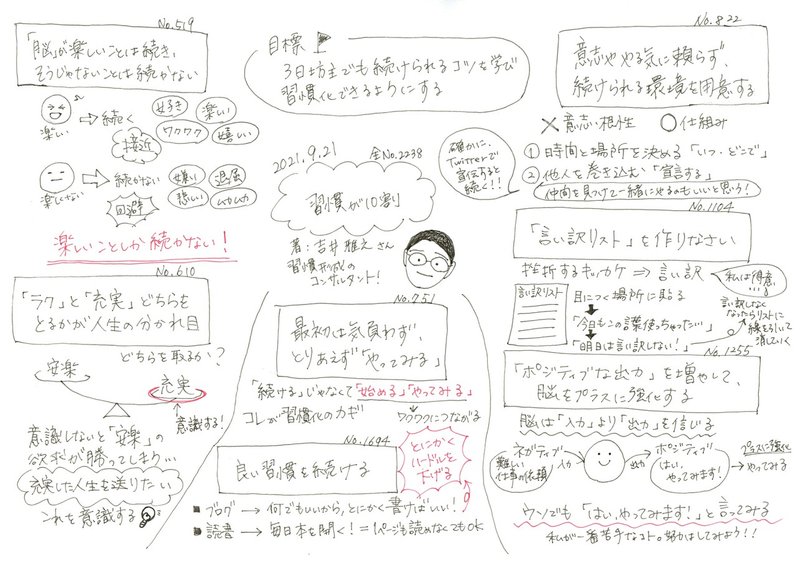 No.519
「脳」が楽しいことは続き、
そうじゃないことは続かない
楽しい
続く
接近
好き
楽しい
ワクワク
嬉しい
楽しくない
続かない
回避
嫌い
退屈
悲しい
ムカムカ
楽しいことしか続かない!
No.610
「ラク」と「充実」どちらを
とるかが人生の分かれ目
どちらを取るか?
安楽
充実
意識する!
意識しないと「安楽」の
欲求が勝ってしまう…
充実した人生を送りたい
これを意識する
目標
3日坊主でも続けられるコツを学び
習慣化できるようにする
2021.9.21
全No.2238
習慣が10割
著:吉井雅之さん
習慣形成の
コンサルタント!
確かに、
Twitterで
宣伝すると
続く!!
No.751
最初は気負わず、
とりあえず「やってみる」
「続ける」じゃなくて「始める」「やってみる」
コレが習慣化のカギ
ワクワクにつながる
No.1694
良い習慣を続ける
とにかく
ハードルを
下げる
ブログ → 何でもいいから、とにかく書けばいい!
読書 → 毎日本を開く!=1ページも読めなくてもOK
No.822
意志ややる気に頼らず、
続けられる環境を用意する
意志・根性
仕組み
① 時間と場所を決める「いつ・どこで」
② 他人を巻き込む「宣言する」
仲間を見つけて一緒にやるのもいいと思う!
No.1104
「言い訳リスト」を作りなさい
挫折するキッカケ ⇒ 言い訳
私は得意…!
言い訳リスト
目につく場所に貼る
「今日もこの言葉使っちゃった…」
「明日は言い訳しない!」
言い訳しなく
なったらリストに
線を引いて
消していく
No.1255
「ポジティブな出力」を増やして、
脳をプラスに強化する
脳は「入力」より「出力」を信じる
ネガティブ
難しい
仕事の依頼
入力
出力
ポジティブ
はい、
やってみます!
プラスに強化
やってみる
ウソでも「はい、やってみます!」と言ってみる
私が一番苦手なコト。努力はしてみよう!!